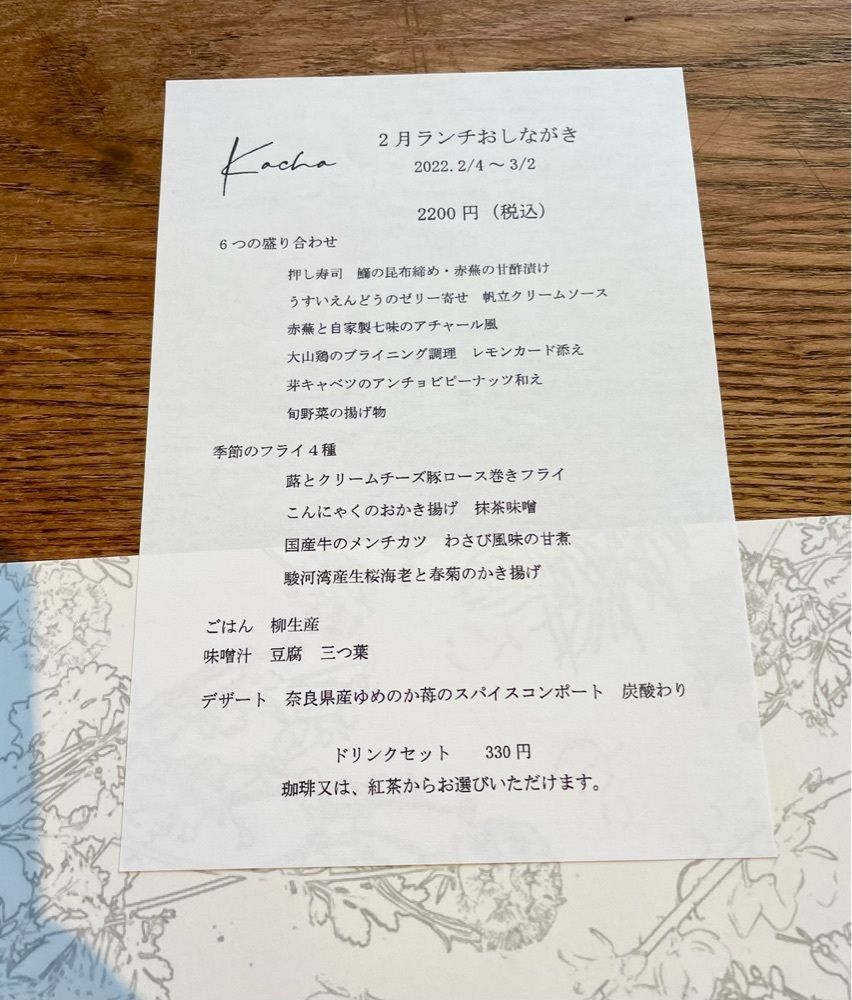 Kacha
2月ランチおしながき
2022.2/4〜3/2
2200円（税込）
6つの盛り合わせ
押し寿司　鰤の昆布締め・赤蕪の甘酢漬け
うすいえんどうのゼリー寄せ　帆立クリームソース
赤蕪と自家製七味のアチャール風
大山鶏のブライニング調理　レモンカード添え
芽キャベツのアンチョビピーナッツ和え
旬野菜の揚げ物
季節のフライ4種
蕗とクリームチーズ豚ロース巻きフライ
こんにゃくのおかき揚げ　抹茶味噌
国産牛のメンチカツ　わさび風味の甘煮
駿河湾産生桜海老と春菊のかき揚げ
ごはん　柳生産
味噌汁　豆腐　三つ葉
デザート　奈良県産ゆめのか苺のスパイスコンポート　炭酸わり
ドリンクセット　　330円
珈琲又は、紅茶からお選びいただけます。